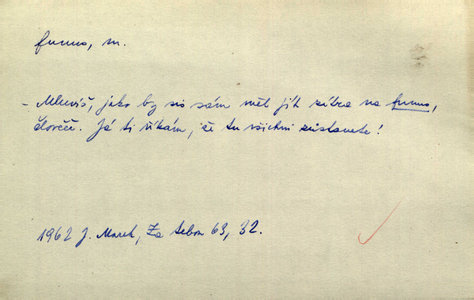 furuno, m.
- Mluvíš, jako by sis sám měl jít zítra na furuno,
člověče. Já ti říkám, že tu všichni zůstanete!
1962 J. Marek, Za tebou 63, 32.